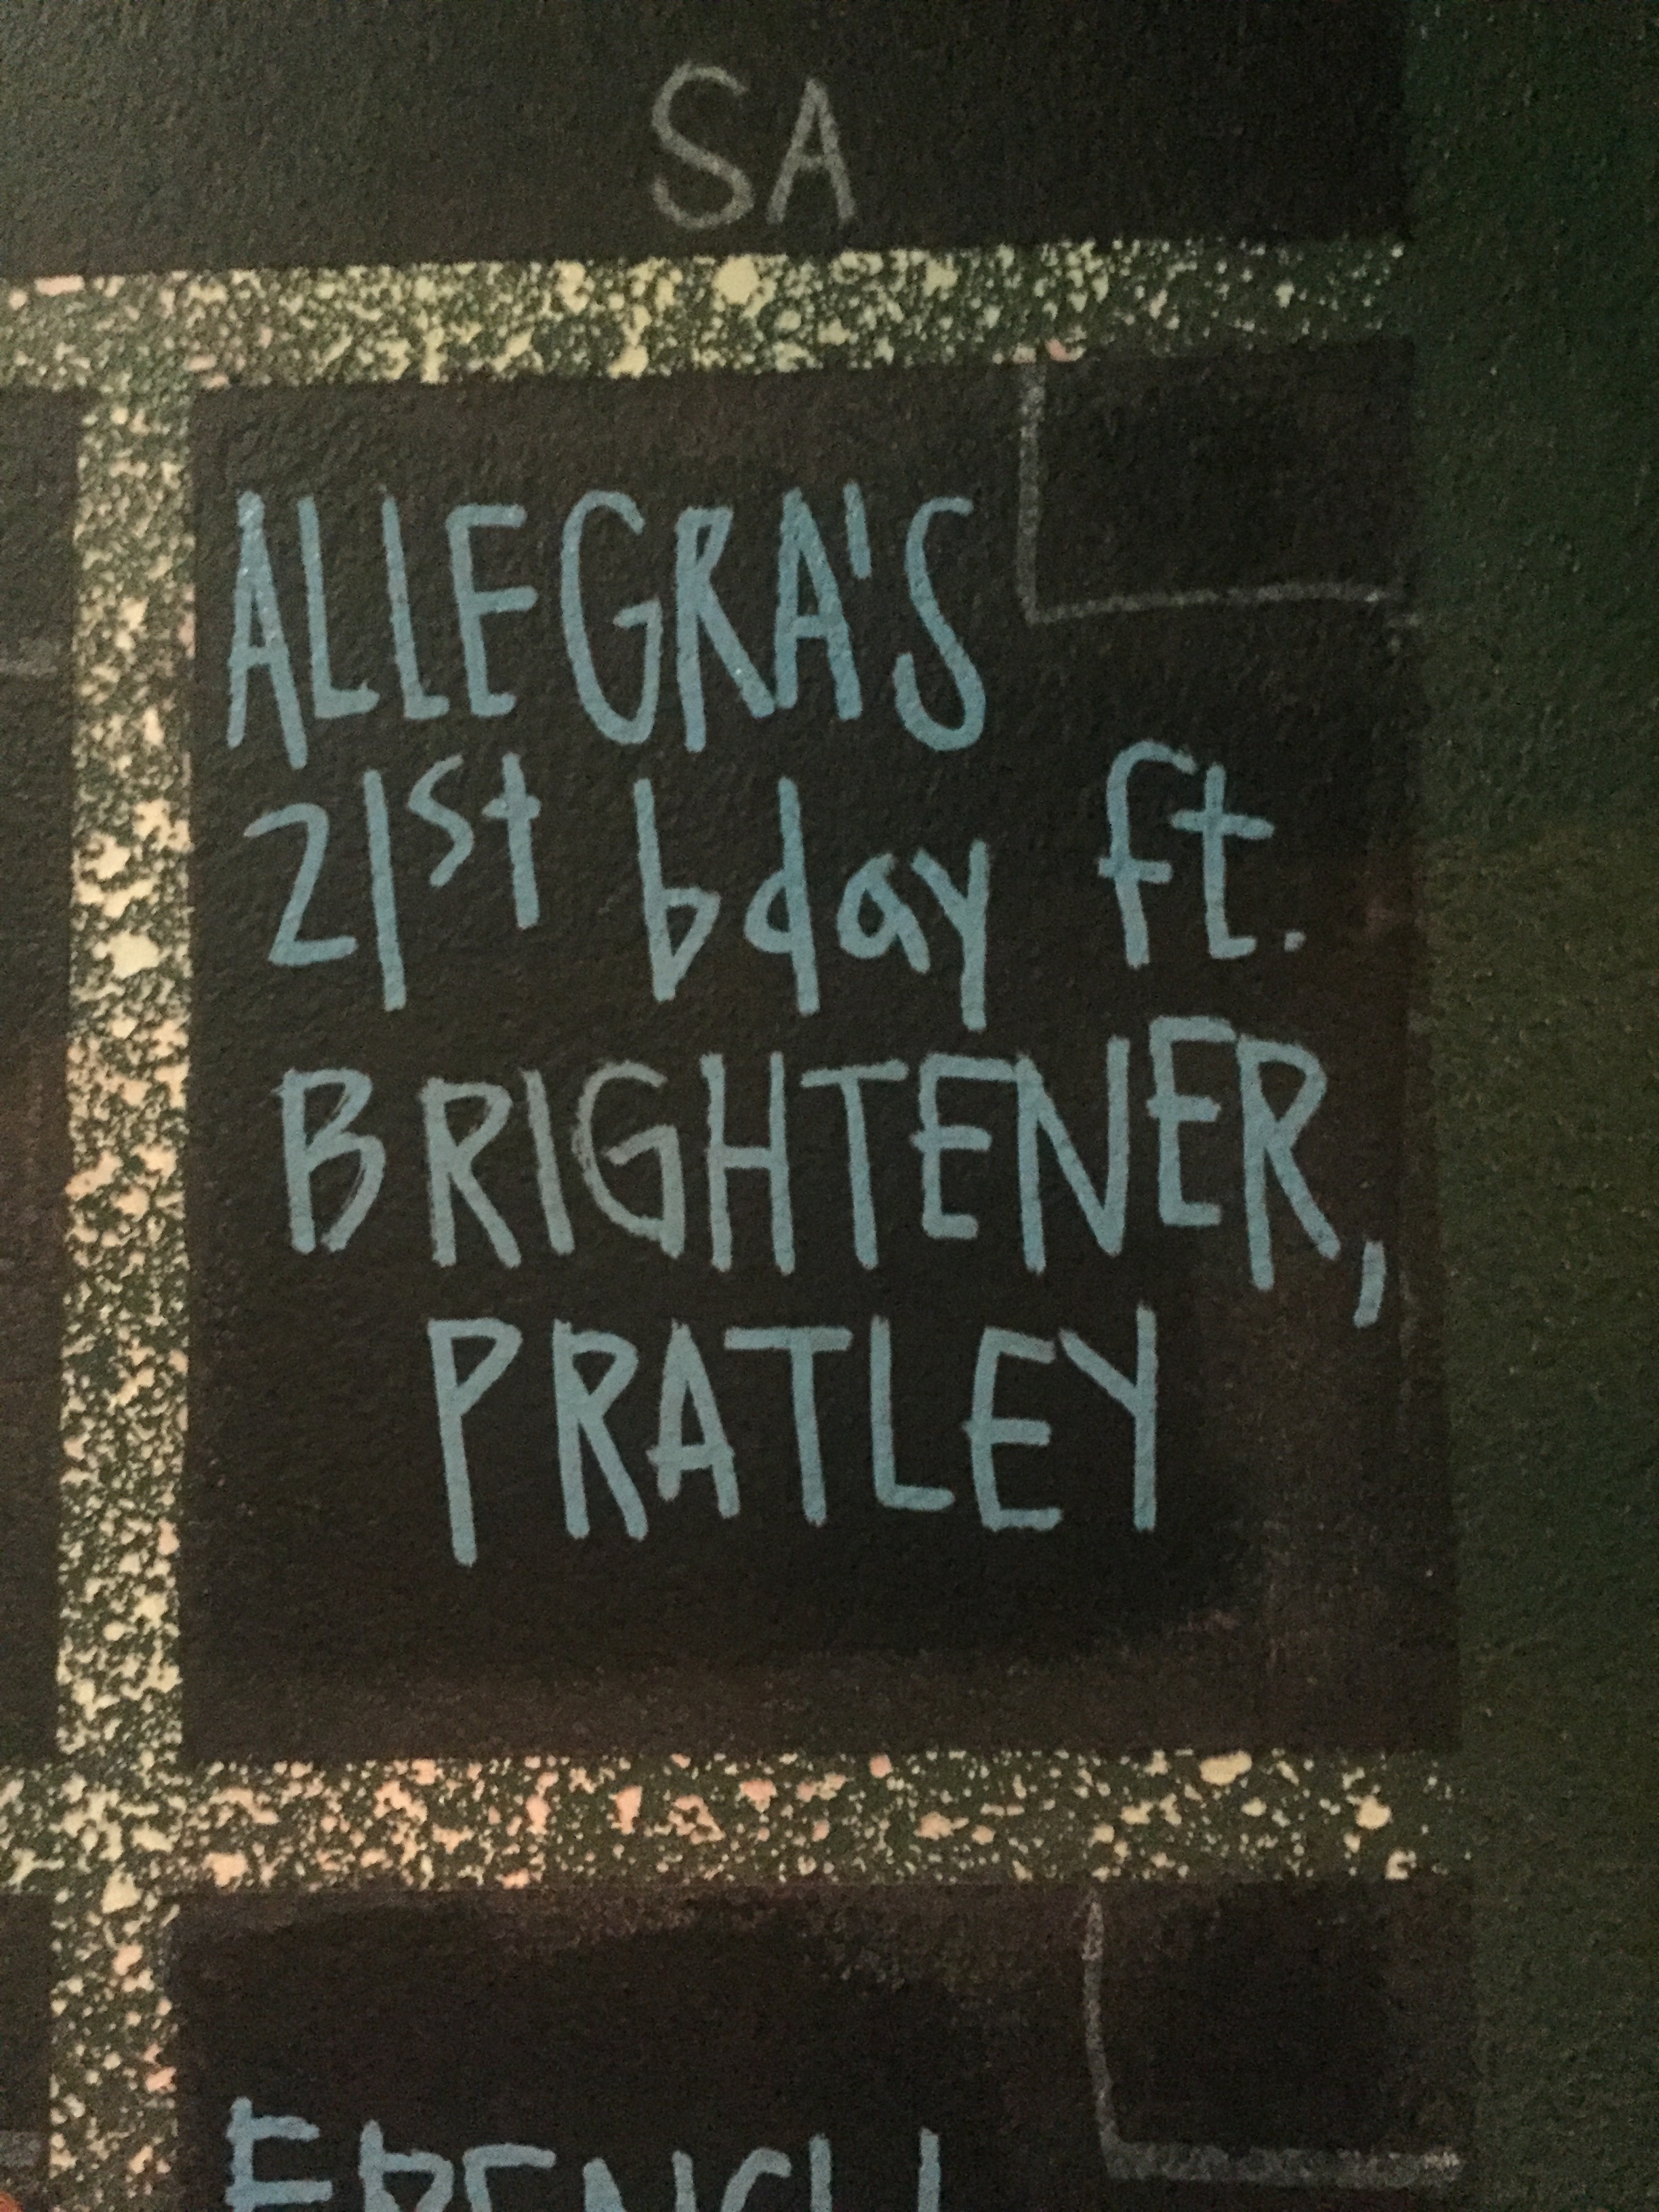 SA
ALLEGRA'S
21st bday ft.
BRIGHTENER,
PRATLEY
FRENCH